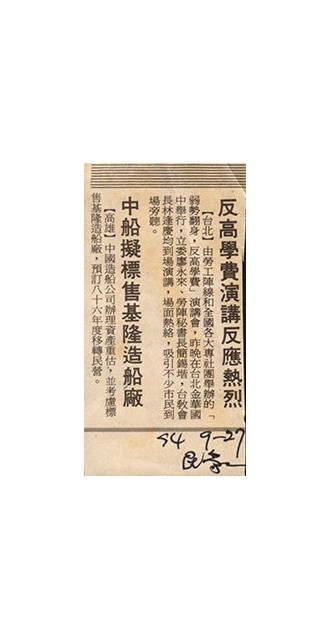 反高學費演講反應熱烈
【台北】由勞工陣線和全國各大專社團舉辦的「
弱勢翻身，反高學費」演講會，昨晚在台北金華國
中舉行，立委廖永來、勞陣秘書長簡錫堦，台教會
長林逢慶均到場演講，場面熱絡，吸引不少市民到
場旁聽。
中船擬標售基隆造船廠
【高雄】中國造船公司辦理資產重估，並考慮標
售基隆造船廠，預訂八十六年度移轉民營。
84 9-27